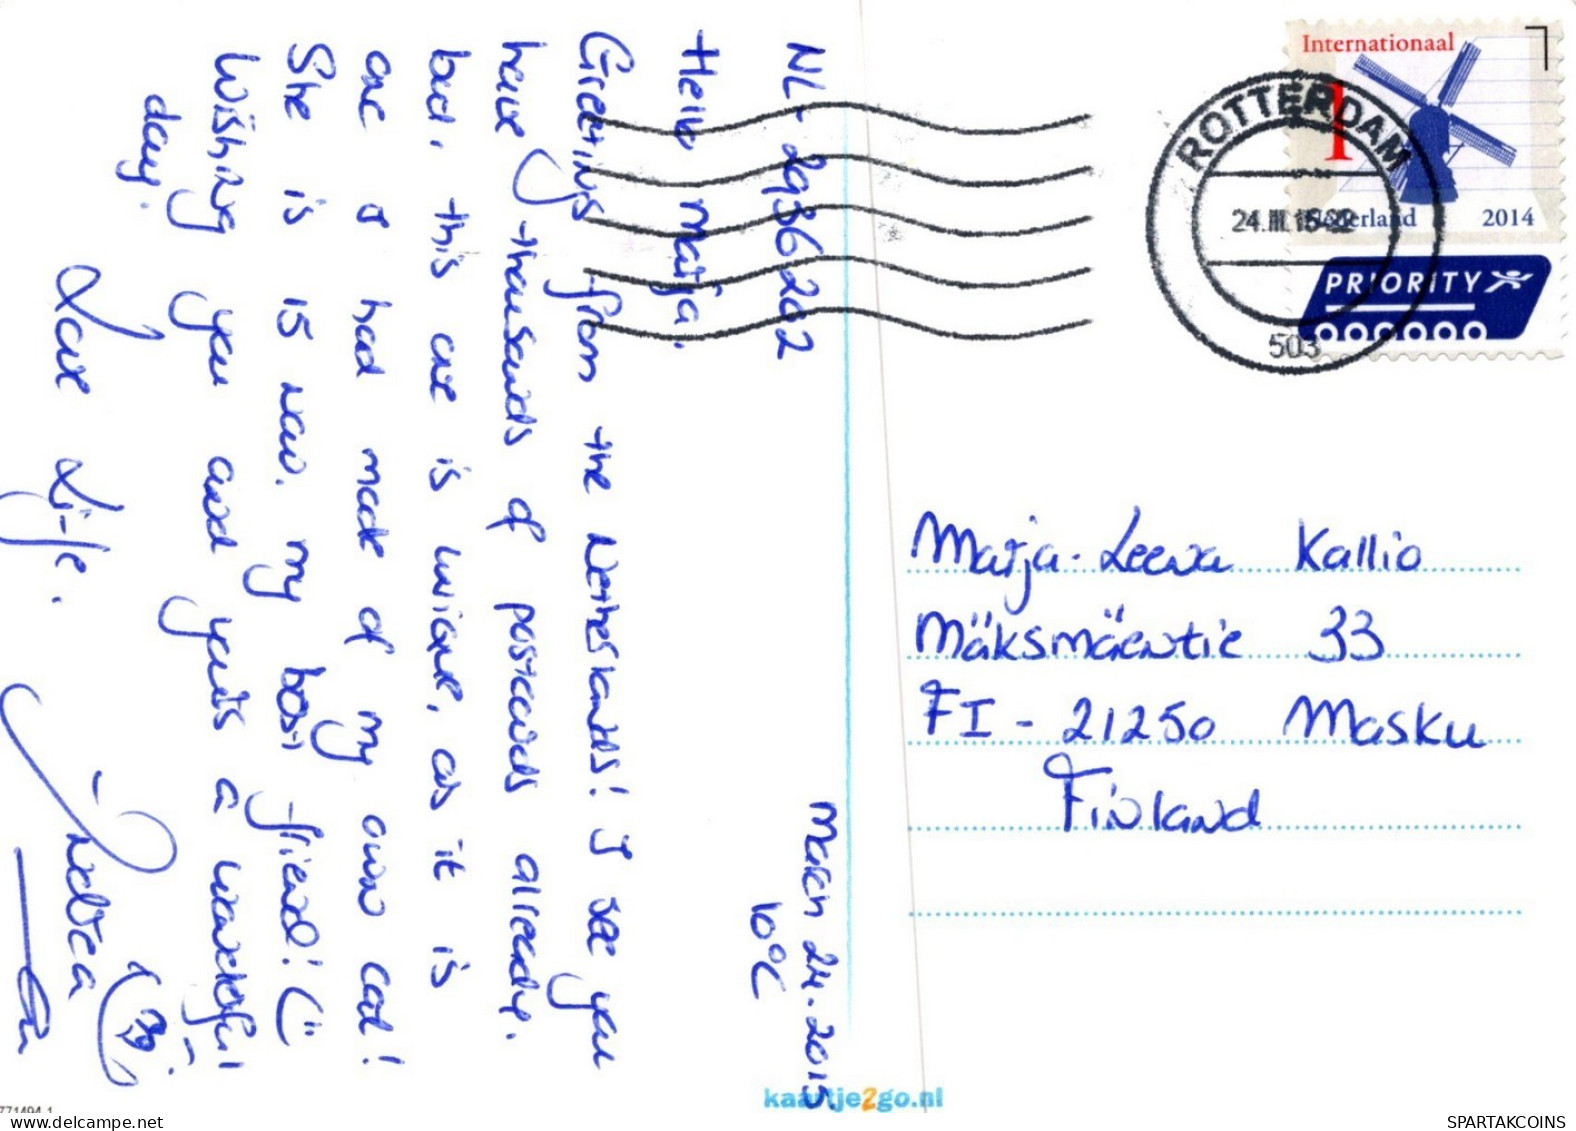 NL-2936202
March 24. 2015
10°C
Hello Marja.
Greetings from the Netherlands! I see you
have thousands of postcards allready.
but, this one is unique, as it is
one I had made of my own cat!
She is 15 now. my best friend!
Wishing you and yours a wonderful
day.
Love Life.
Internationaal
1
Nederland 2014
PRIORITY
ROTTERDAM
24.III.15
503
Marja-Leena Kallio
Mäksmäentie 33
FI-21250 Masku
Finland
kaartje2go.nl
771494-1
SPARTAKCOINS